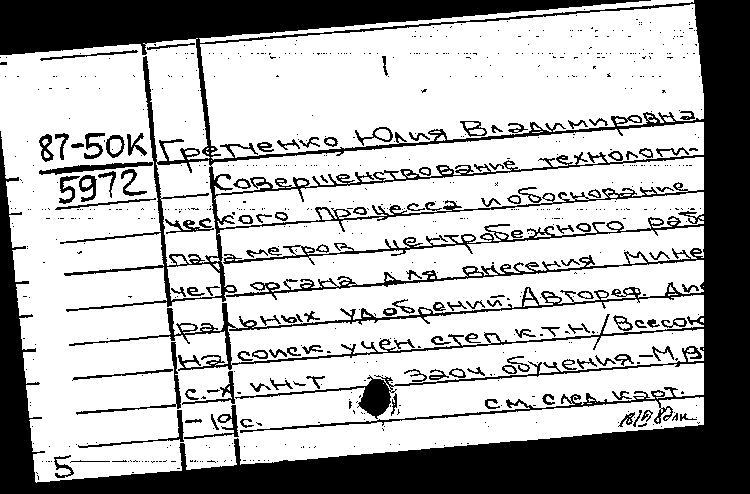 87-50К
5972
Гретченко, Юлия Владимировна
Совершенствование технологи-
ческого процесса и обоснование
параметров центробежного рабо
чего органа для внесения мине
ральных удобрений: Автореф. дис
на соиск. учен. степ. к.т.н. / Всесою
с.-х. ин-т заоч. обучения.-М, 19
-19 с.
см. след. карт.
5